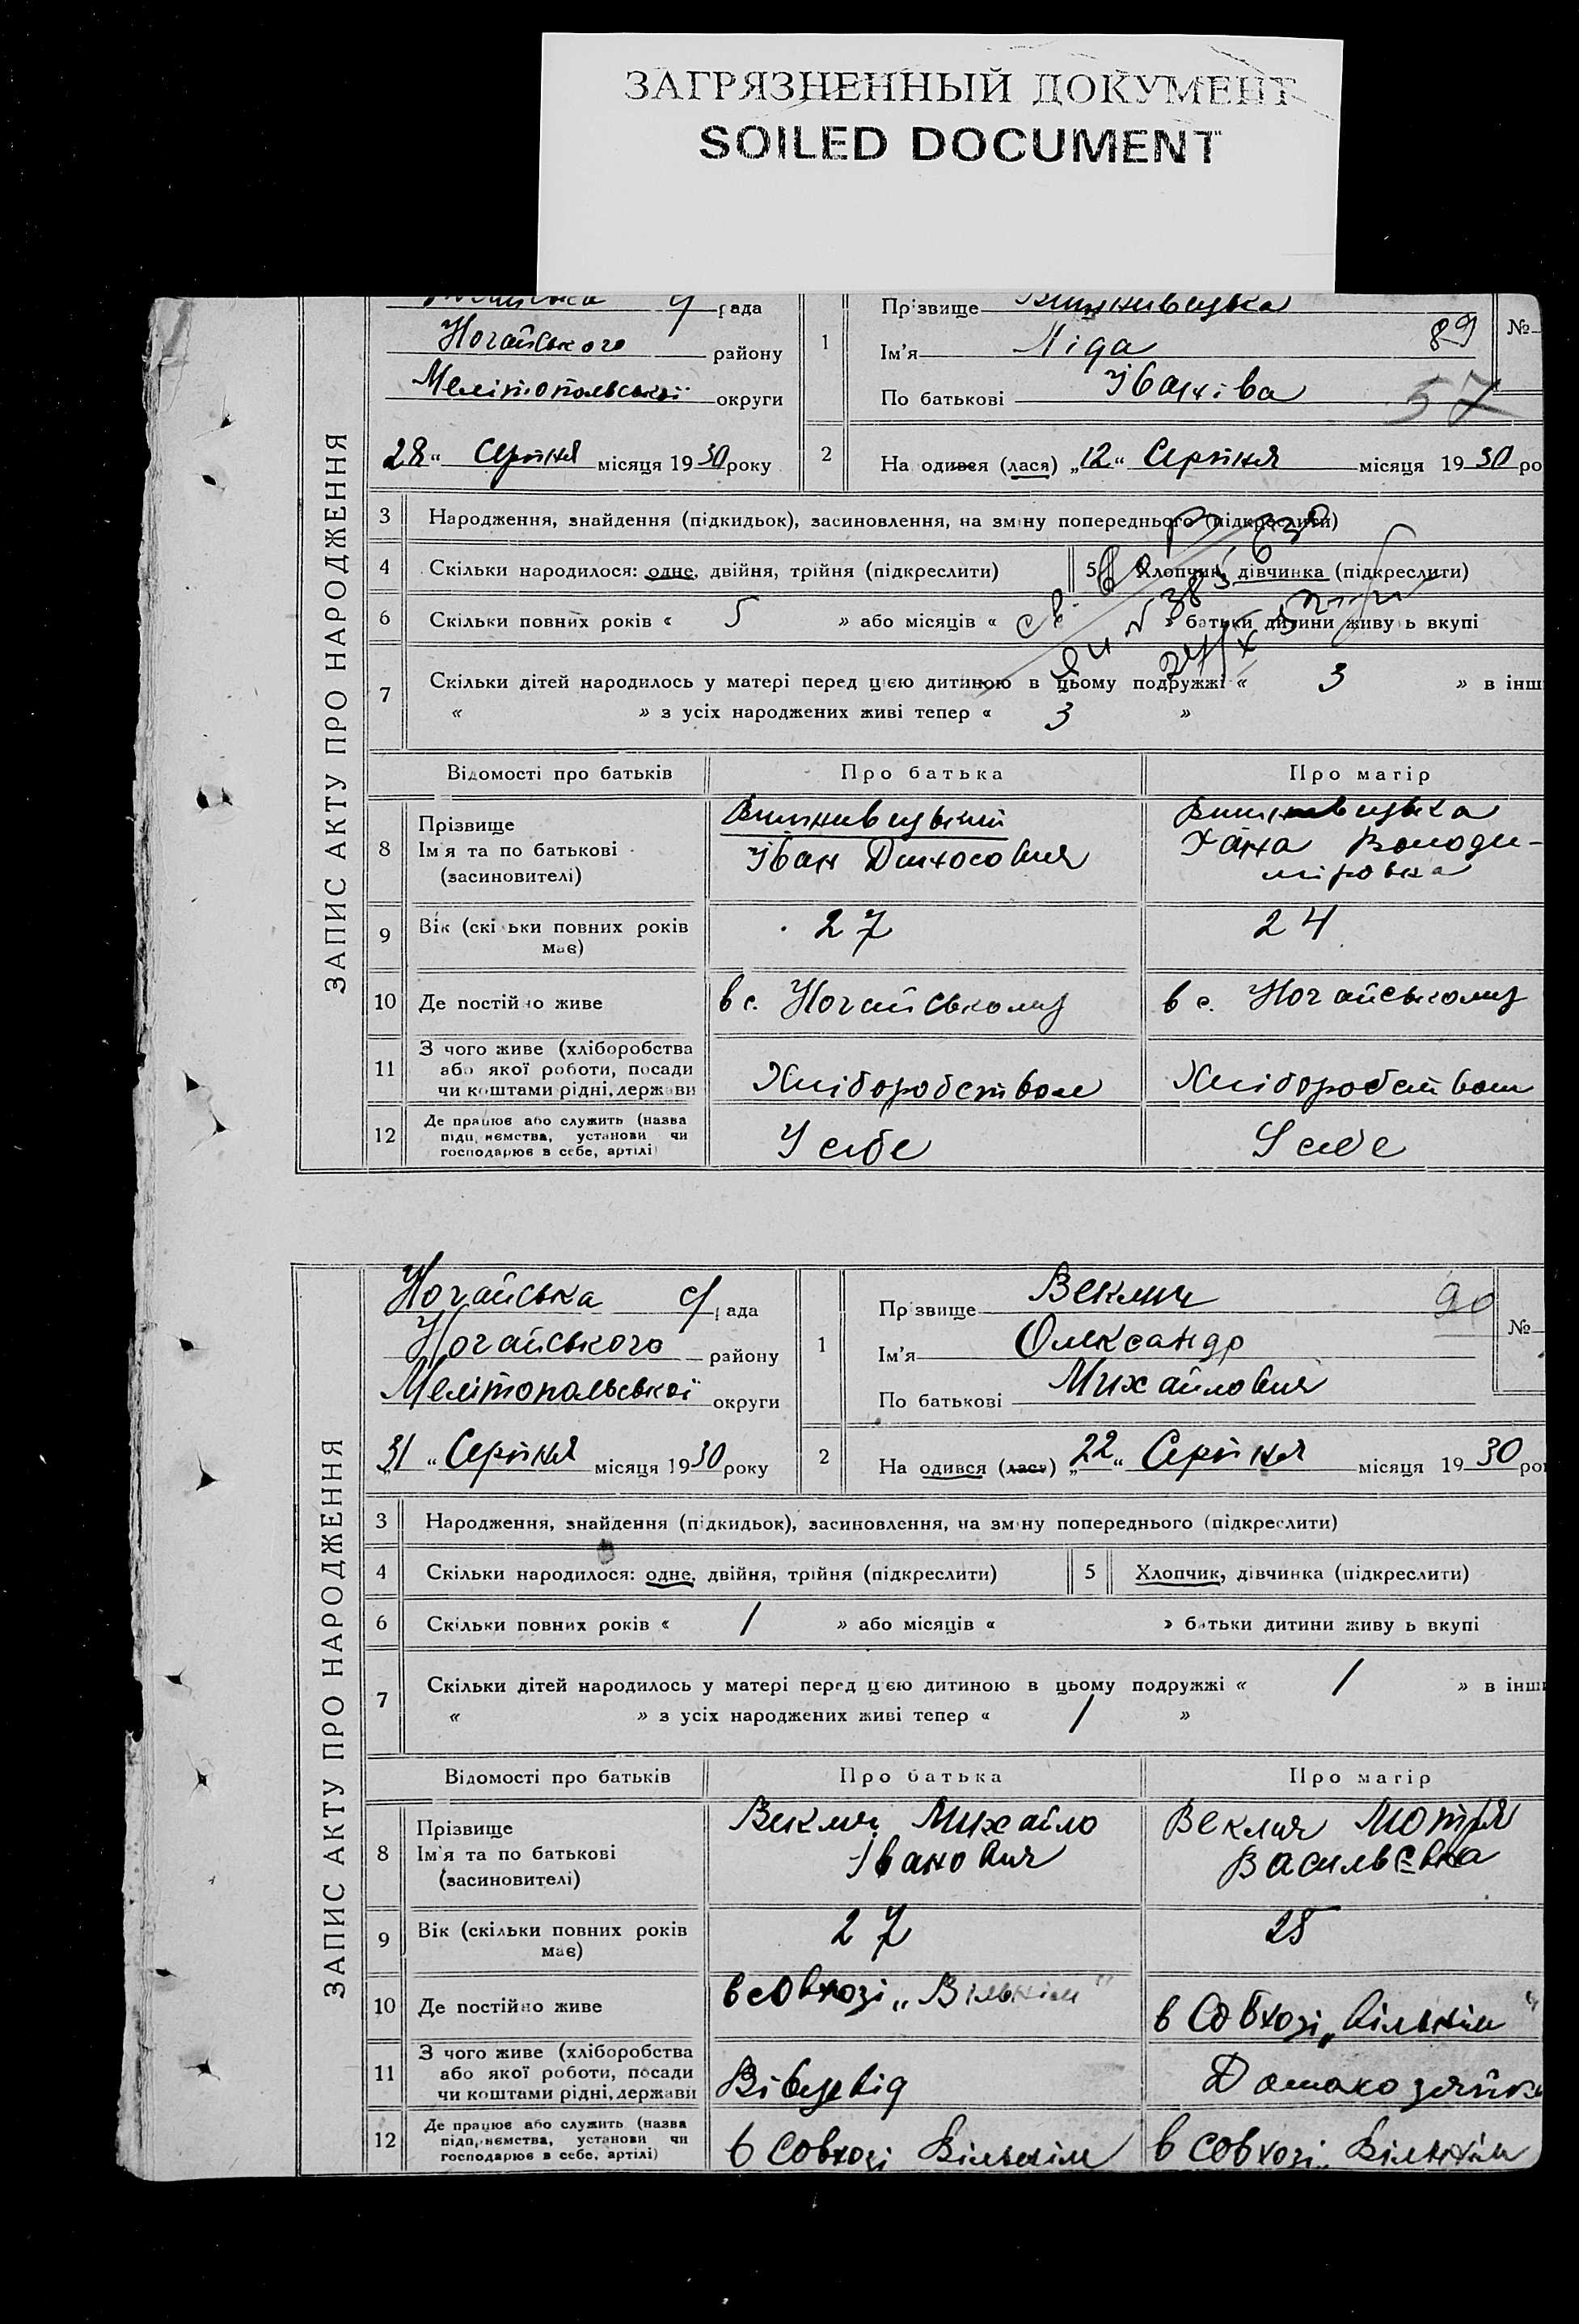 ЗАГРЯЗНЕННЫЙ ДОКУМЕНТ
SOILED DOCUMENT
ЗАПИС АКТУ ПРО НАРОДЖЕННЯ
рада
Ногайського району
Мелітопольської округи
28 " Серпня місяця 1930 року
1
Прізвище Вишнивецька
Ім'я Ліда
89
По батькові Іванівна
57
№
2
Народився (лася) „12" Серпня місяця 1930 ро
3 Народження, знайдення (підкидьок), засиновлення, на зміну попереднього (підкреслити)
4 Скільки народилося: одне, двійня, трійня (підкреслити)
5 Хлопчик, дівчинка (підкреслити)
6 Скільки повних років « 5 » або місяців « » батьки дитини живуть вкупі
7 Скільки дітей народилось у матері перед цією дитиною в цьому подружжі « 3 » в інш
« » з усіх народжених живі тепер « 3 »
Відомості про батьків Про батька Про матір
8 Прізвище
Ім'я та по батькові
(засиновителі)
Вишнивецький
Іван
Вишнивецька
Володи-
мировна
9 Вік (скільки повних років
має)
27
24
10 Де постійно живе
в с. Ногайському
в с. Ногайському
11 З чого живе (хліборобства
або якої роботи, посади
чи коштами рідні, держави
Хліборобством
Хліборобством
12 Де працює або служить (назва
підприємства, установи чи
господарює в себе, артілі)
У себе
У себе
ЗАПИС АКТУ ПРО НАРОДЖЕННЯ
Ногайська с/рада
Ногайського району
Мелітопольської округи
„31 " Серпня місяця 1930 року
1
Прізвище Веклич
90
Ім'я Олександр
По батькові Михайлович
№
2
Народився (лася) „22" Серпня місяця 1930 ро
3 Народження, знайдення (підкидьок), засиновлення, на зміну попереднього (підкреслити)
4 Скільки народилося: одне, двійня, трійня (підкреслити)
5 Хлопчик, дівчинка (підкреслити)
6 Скільки повних років « 1 » або місяців « » батьки дитини живуть вкупі
7 Скільки дітей народилось у матері перед цією дитиною в цьому подружжі « 1 » в інш
« » з усіх народжених живі тепер « 1 »
Відомості про батьків Про батька Про матір
8 Прізвище
Ім'я та по батькові
(засиновителі)
Веклич Михайло
Іванович
Веклич Мотря
Васильєвна
9 Вік (скільки повних років
має)
27
25
10 Де постійно живе
в совхозі „Вільнім"
в Совхозі „Вільнім"
11 З чого живе (хліборобства
або якої роботи, посади
чи коштами рідні, держави
Домохозяйка
12 Де працює або служить (назва
підприємства, установи чи
господарює в себе, артілі)
в Совхозі Вільнім
в Совхозі Вільнім